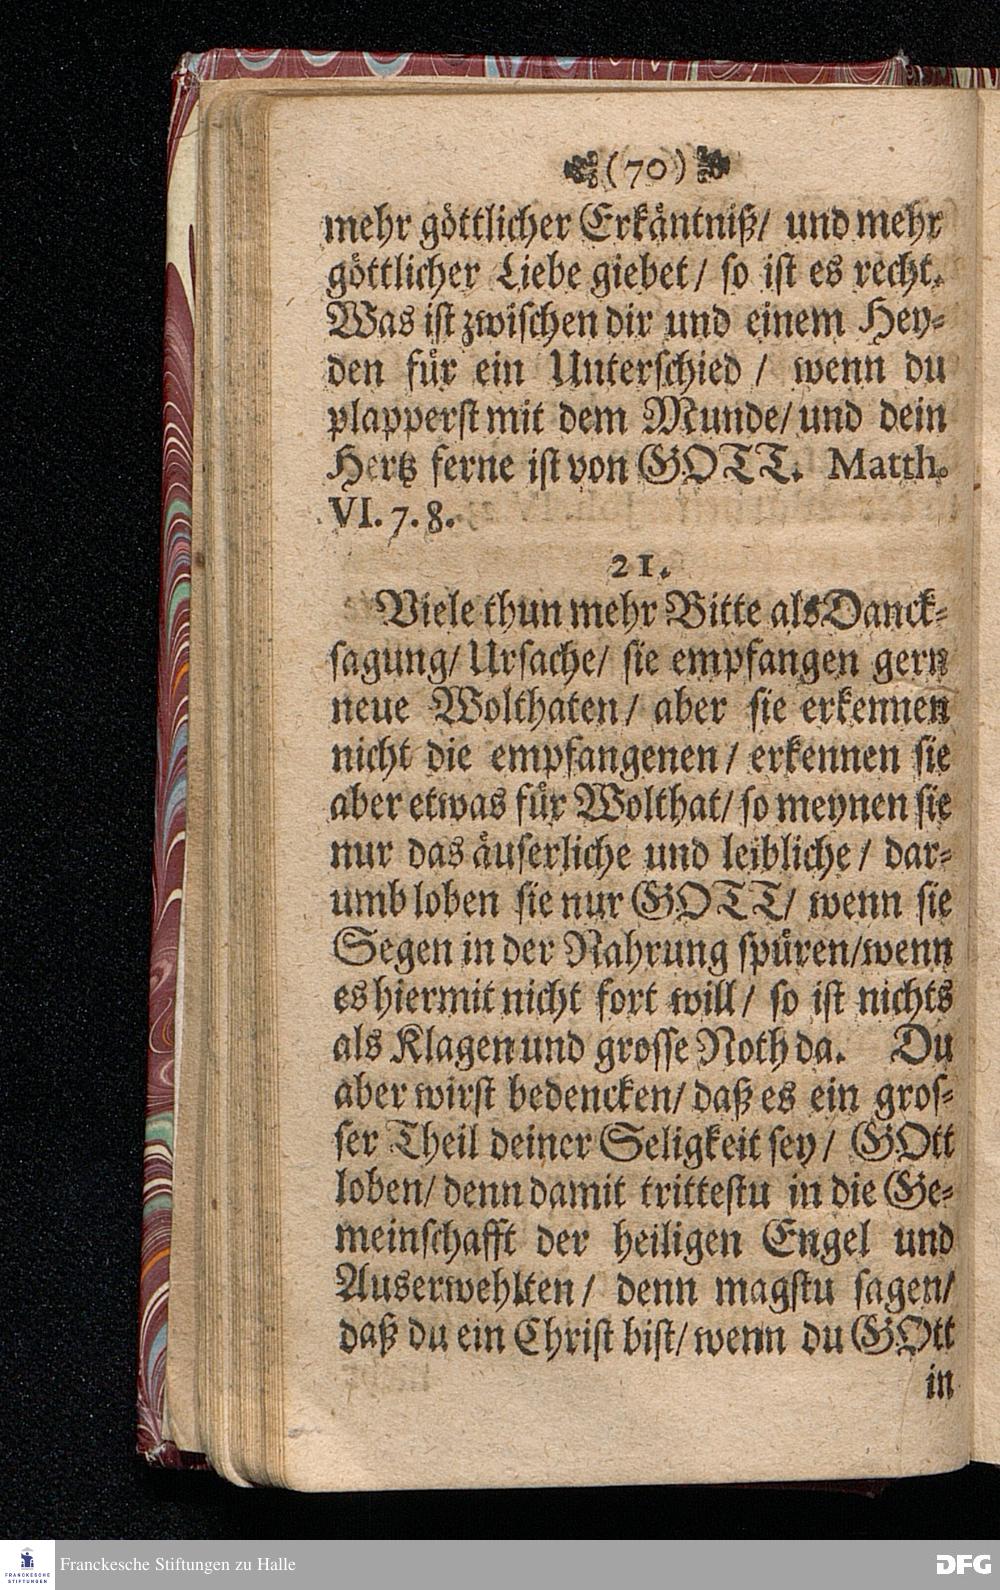 (70)
mehr göttlicher Erkäntniß/ und mehr
göttlicher Liebe giebet/ so ist es recht.
Was ist zwischen dir und einem Hey-
den für ein Unterschied / wenn du
plapperst mit dem Munde/ und dein
Hertz ferne ist von GOTT. Matth.
VI. 7. 8.
21.
Viele thun mehr Bitte als Danck-
sagung/ Ursache/ sie empfangen gern
neue Wolthaten/ aber sie erkennen
nicht die empfangenen/ erkennen sie
aber etwas für Wolthat/ so meynen sie
nur das äuserliche und leibliche / dar-
umb loben sie nur GOTT/ wenn sie
Segen in der Nahrung spüren/wenn
es hiermit nicht fort will/ so ist nichts
als Klagen und grosse Noth da. Du
aber wirst bedencken/ daß es ein gros-
ser Theil deiner Seligkeit sey/ GOtt
loben/ denn damit trittestu in die Ge-
meinschafft der heiligen Engel und
Auserwehlten/ denn magstu sagen/
daß du ein Christ bist/ wenn du GOtt
in
FRANCKESCHE
STIFTUNGEN
Franckesche Stiftungen zu Halle
DFG